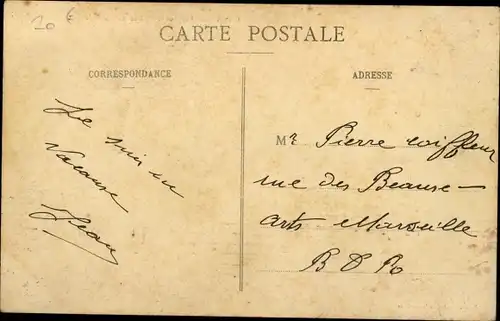 20 €
CARTE POSTALE
CORRESPONDANCE
ADRESSE
Je suis en
Vacanse
Jean
Mr Pierre coiffeur
rue des Beause-
arts Marseille
B D Ro